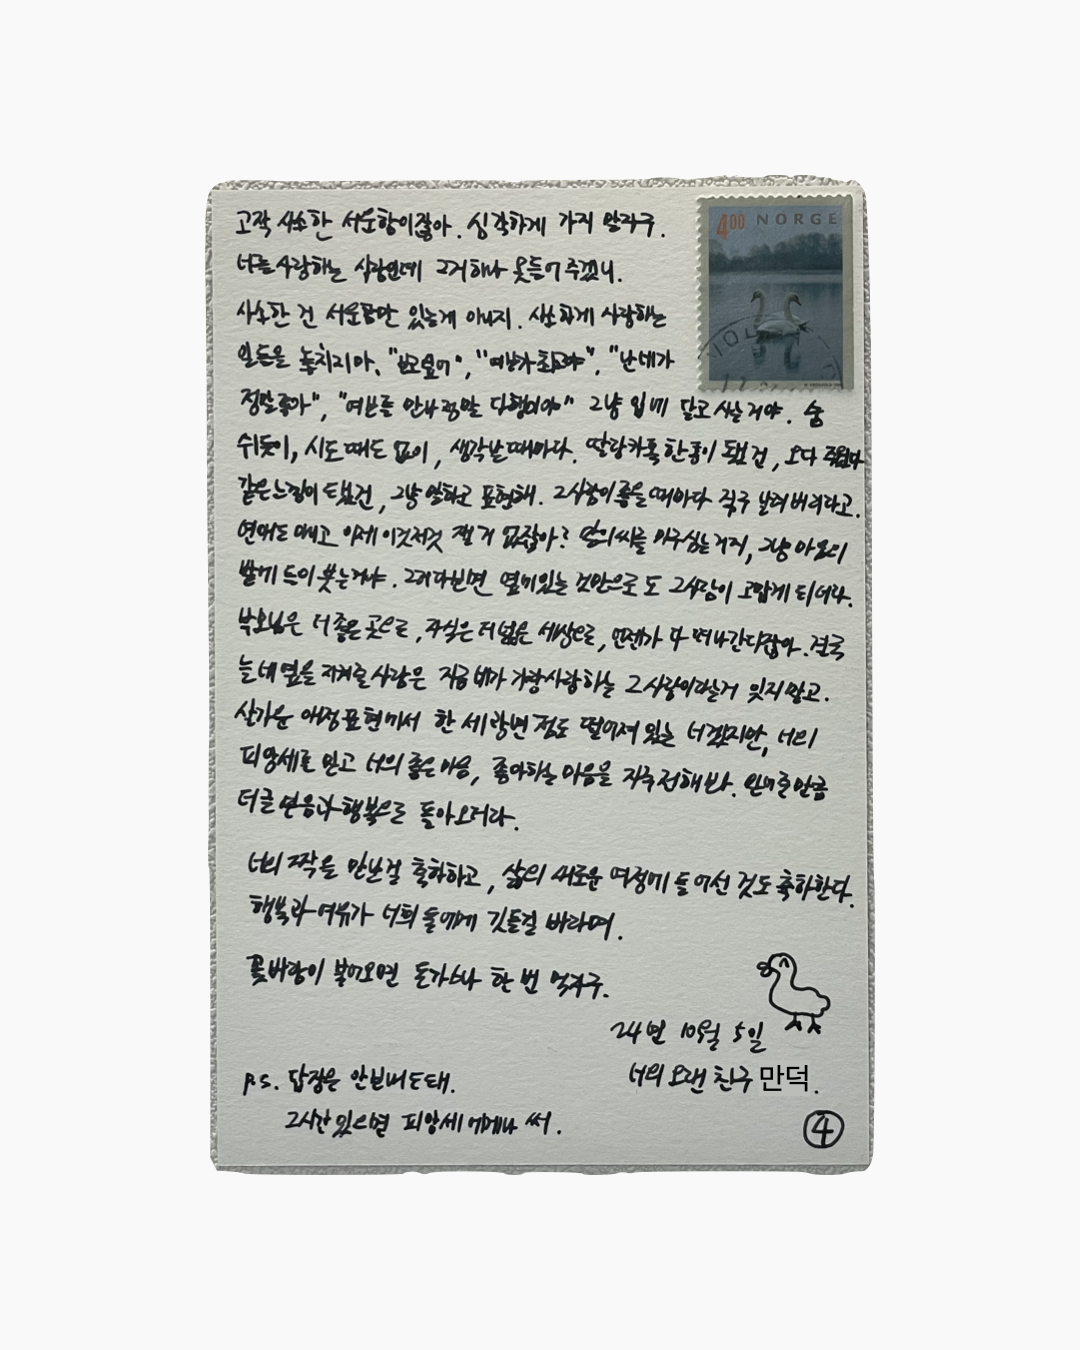 고작 사소한 서운함이잖아. 심각하게 가지 말자구.
너를 사랑하는 사람인데 그거 하나 못들어 주겠니.
사소한 건 서운함만 있는게 아니지. 사소하게 사랑하는
일들을 놓치지마. "보고싶어", "여보가 최고야", "난 네가
정말 좋아", "여보를 만나 정말 다행이야" 그냥 입에 달고 사는거야. 숨
쉬듯이, 시도때도 없이, 생각날때마다. 딸랑 카톡 한통이 됐건, 오다 주웠다
같은 느낌이 됐건, 그냥 말하고 표현해. 그사람이 좋을때마다 직구 날려버리라고.
연애도 아니고 이제 이것저것 잴 거 없잖아? 말의 씨를 마구 심는거지, 그냥 마음의
밭에 들이붓는거야. 그러다보면 옆에있는 것만으로도 그사람이 고맙게 되더라.
부모님은 더 좋은 곳으로, 자식은 더 넓은 세상으로, 언젠가 다 떠나간다잖아. 결국
늘 네 옆을 지켜줄 사람은 지금 네가 가장 사랑하는 그사람이라는거 잊지말고.
살가운 애정표현에서 한 세 광년 정도 떨어져 있는 너겠지만, 너의
피앙세를 믿고 너의 좋은 마음, 좋아하는 마음을 자주 전해봐. 믿어준만큼
더 큰 믿음과 행복으로 돌아오더라.
너의 짝을 만난걸 축하하고, 삶의 새로운 여정에 들어선 것도 축하한다.
행복과 여유가 너희 둘에게 깃들길 바라며.
꽃바람이 불어오면 돈가스나 한 번 먹자구.
24년 10월 5일
너의 오랜 친구 만덕.
p.s. 답장은 안보내도돼.
그시간 있으면 피앙세에게나 써.
④
4⁰⁰ NORGE